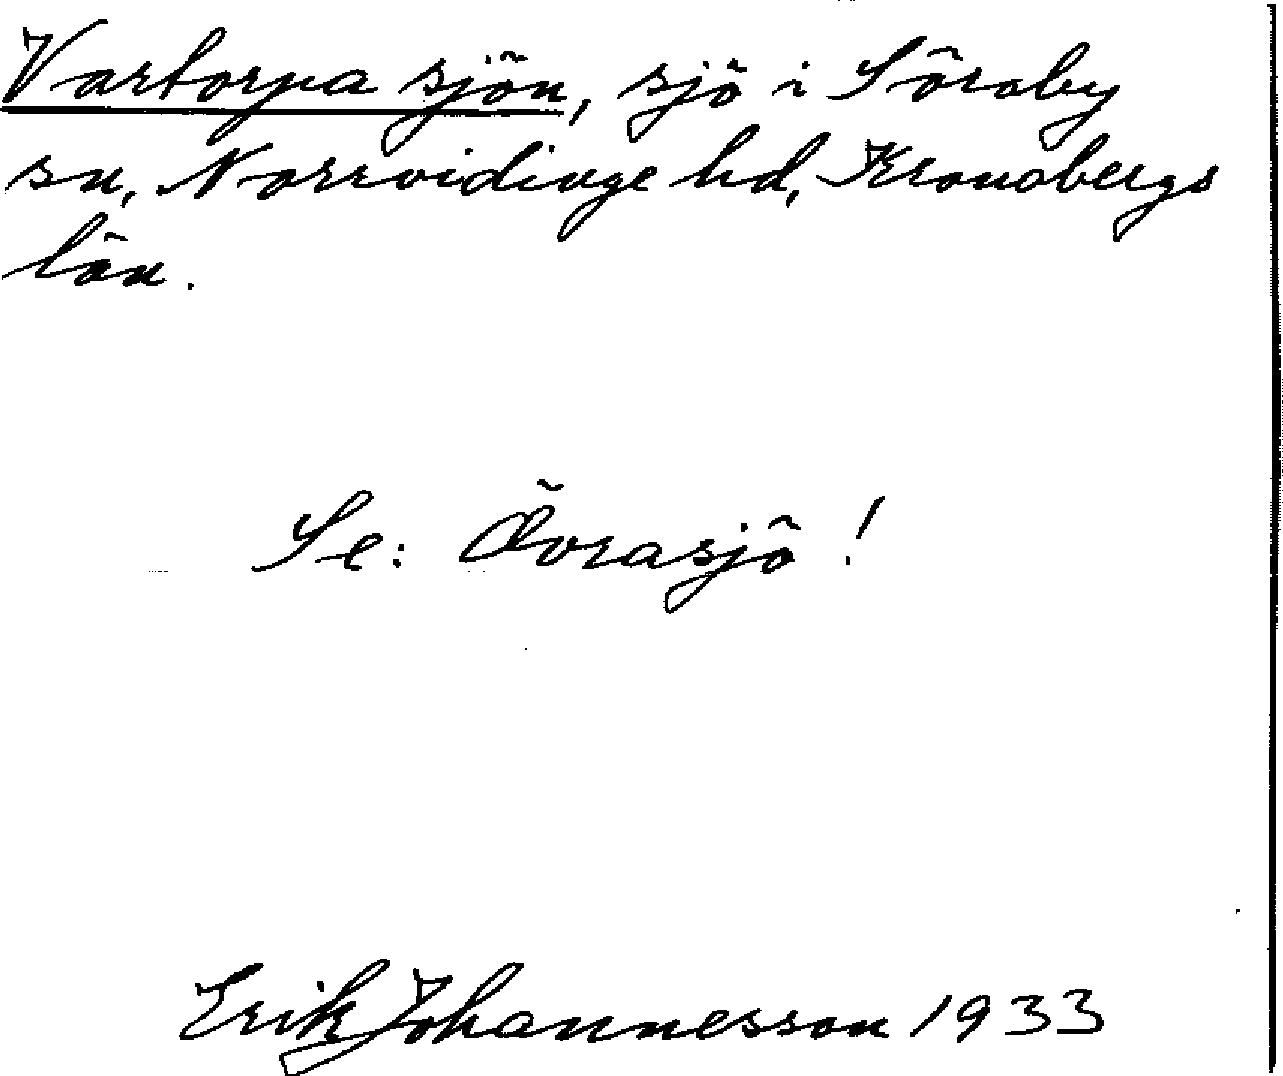 Vartorpa sjön, sjö i Söraby
sn, Norrvidinge hd, Kronobergs
län.
Se: Övrasjö!
Erik Johannesson 1933